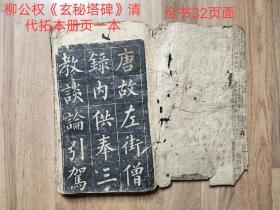 柳公权《玄秘塔碑》清
代拓本册页一本
全书32页面
唐故左街僧
録内供奉三
教談論引駕